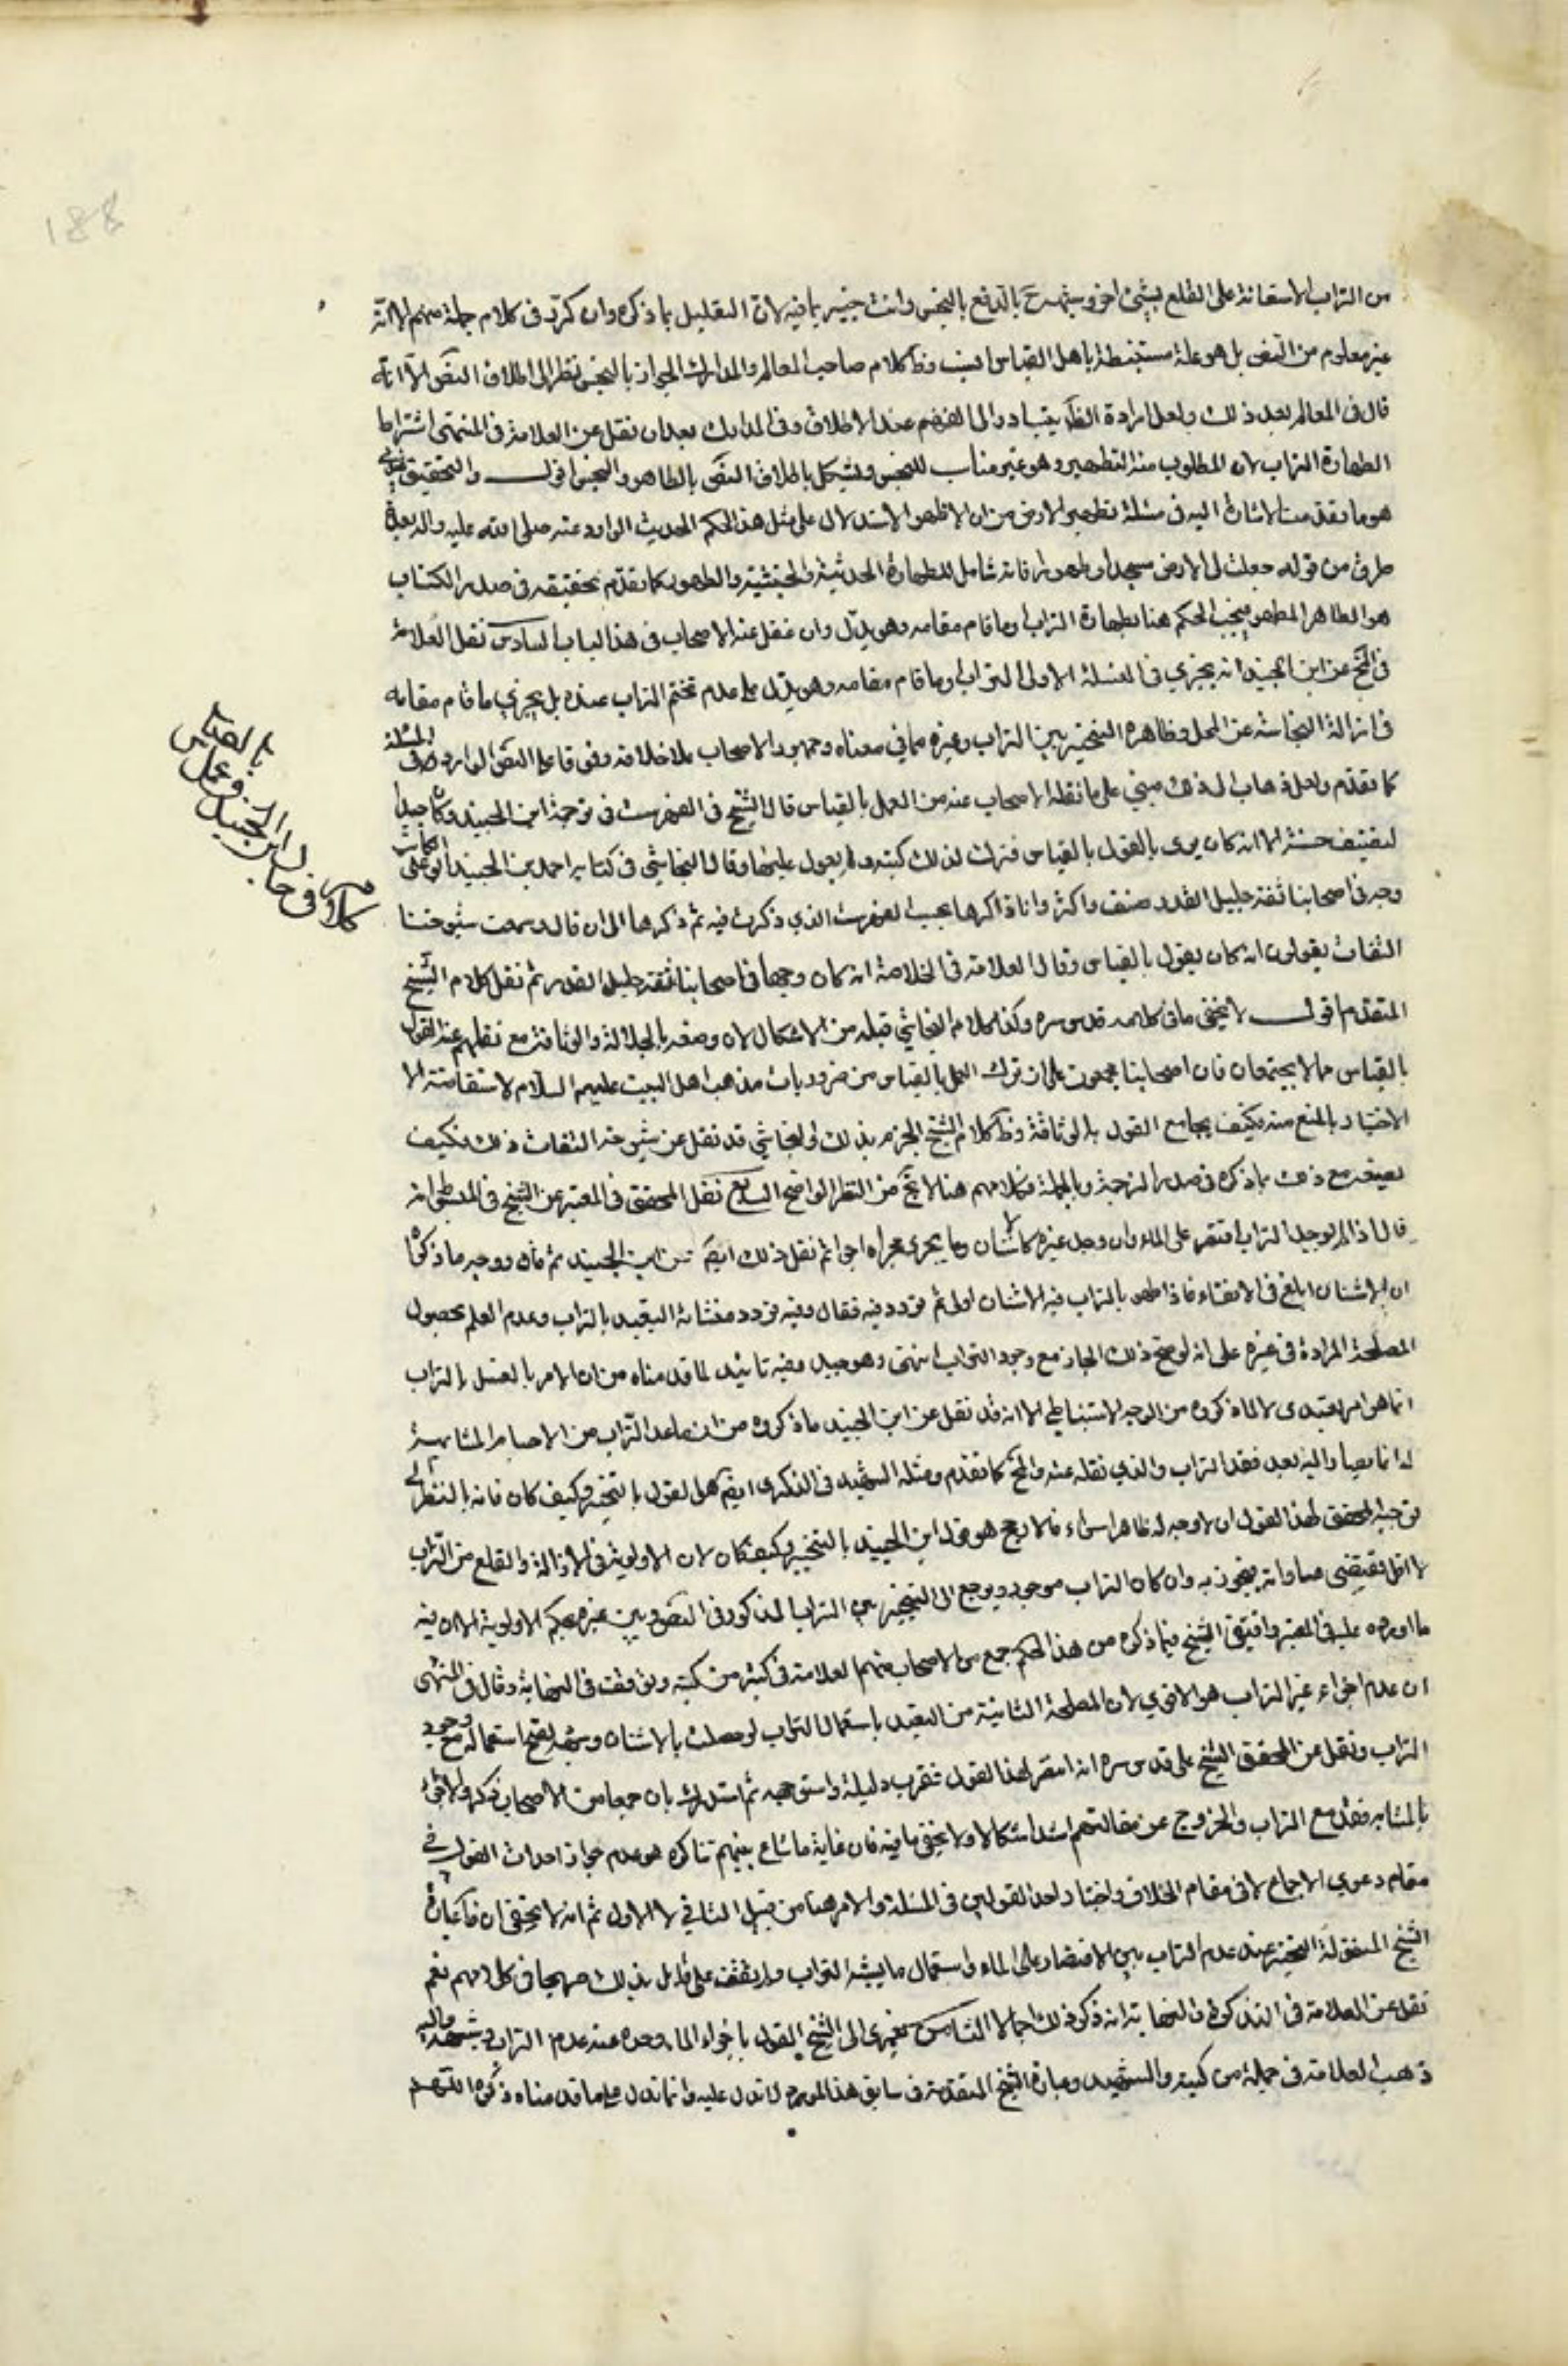 من التراب الاستعانة على القلع بشيئ اخر وسيئ صرح بالدافع بالنجس وانت خبير بما فيه لان التعليل بما ذكره وان كثر في كلام جملة منهم الا انه
غير معلوم من النص بل هو علة مستنبطة باهل القياس اليق وظ كلام صاحب المعالم والمدارك الجواز بالنجس نظرا الى اطلاق النص الا انه
قال في المعالم بعد ذلك ولعل ارادة الظ يتبادر الى الفهم عند الاطلاق وفي المدارك بعد ان نقل عن العلامة في المنتهى اشتراط
الطهارة التراب لان المطلوب منه التطهير وهو غير مناسب للنجس ويشكل باطلاق النص بالطاهر والنجس اقول والتحقيق
هو ما تقدمت الاشارة اليه في مسئلة تطهير الارض من ان الاظهر الاستدلال على مثل هذا الحكم الحديث الوارد عنه صلى الله عليه واله بعدة
طرق من قوله جعلت لي الارض مسجدا وطهورا فانه شامل للطهارة الحدثية والخبثية والطهور كما تقدم تحقيقه في صدر الكتاب
هو الطاهر المطهر فيجب الحكم هنا بطهارة التراب وما قام مقامه وهو يدل وان غفل عنه الاصحاب في هذا الباب السادس نقل العلامة
في المخ عن ابن الجنيد انه يجزي في الغسلة الاولى التراب وما قام مقامه وهو يدل على عدم تحتم التراب عنده بل يجزي ما قام مقامه
في ازالة النجاسة عن المحل وظاهره التخيير بين التراب وغيره مما في معناه وجمهور الاصحاب على خلافه وقوفا على النص الوارد في المسئلة
كما تقدم ولعل ذهاب لذلك مبني على ما نقله الاصحاب عنه من العمل بالقياس قال الشيخ في الفهرست في ترجمة ابن الجنيد وكان جيد
التصنيف حسنه الا انه كان يرى بالقول بالقياس فترك لذلك كتبه ولم يعول عليها وقال النجاشي في كتابه احمد بن الجنيد ابو علي الكاتب
وجه في اصحابنا ثقة جليل القدر صنف واكثر وانا ذاكرها بحسب الفهرست الذي ذكرت فيه ثم ذكرها الى ان قال وسمعت شيوخنا
الثقات يقولون انه كان يقول بالقياس وقال العلامة في الخلاصة انه كان وجها في اصحابنا ثقة جليل القدر ثم نقل كلام الشيخ
المتقدم اقول لا يخفى ما في كلامه قدس سره وكذا كلام النجاشي قبله من الاشكال لان وصفه بالجلالة والوثاقة مع نقلهم عنه القول
بالقياس مما لا يجتمعان فان اصحابنا مجمعون على ان ترك العمل بالقياس من ضروريات مذهب اهل البيت عليهم السلام لاستفاضة الا
الاخبار بالمنع منه فكيف يجامع القول بالوثاقة وظ كلام الشيخ الجزم بذلك والنجاشي قد نقل عن شيوخه الثقات ذلك فكيف
يصفه مع ذلك بما ذكره في صدر الترجمة وبالجملة فكلامهم هنا لا يخ من النظر الواضح السابع نقل المحقق في المعتبر عن الشيخ في المبسوط انه
قال اذا لم يوجد التراب اقتصر على الماء وان وجد غيره كالاشنان وما يجري مجراه اجزا ثم نقل ذلك ايض عن ابن الجنيد ثم قال ووجه ما ذكراه
ان الاشنان ابلغ في الانقاء فاذا طهر بالتراب فبالاشنان اولى ثم تردد فيه فقال وفيه تردد منشائه التعبد بالتراب وعدم العلم بحصول
المصلحة المرادة في غيره على انه لو صح ذلك لجاز مع وجود التراب انتهى وهو جيد وفيه تائيد لما قدمناه من ان الامر بالغسل بالتراب
انما هو امر تعبدى لا لما ذكروه من الوجه الاستنباطي الا انه قد نقل عن ابن الجنيد ما ذكروه من ان ما عدا التراب من الاجسام المشابهة
له انما يصار اليه بعد فقد التراب والذي نقله عنه في المخ كما تقدم ومثله الشهيد في الذكرى ايض هل القول بالتخيير وكيف كان فانه بالنظر الى
توجيه المحقق لهذا القول ان لا وجه له ظاهرا سواء فالارجح هو قول ابن الجنيد بالتخيير وكيف كان لان الاولوية في الازالة والقلع من التراب
لا اقل تقتضي مساواته فيجوز به وان كان التراب موجود ويرجع الى التخيير بين التراب المذكور في النص وبين غيره بحكم الاولوية الا ان فيه
ما اورده عليه في المعتبر واقتفى الشيخ فيما ذكره من هذا الحكم جمع من الاصحاب منهم العلامة في كثير من كتبه وتوقف في النهاية وقال في المنتهى
ان عدم اجزاء غير التراب هو الاقوى لان المصلحة الثانية من التعبد باستعمال التراب لو حصلت بالاشنان وشبهه لصح استعماله مع وجود
التراب ونقل عن المحقق الشيخ على قدس سره انه انتصر لهذا القول فقرب دليله واستوجهه ثم استدرك بان جمعا من الاصحاب ذكروا الاجزاء
بالمشابه فقد مع التراب والخروج عن مقالتهم اشد اشكالا ولا يخفى ما فيه فان غاية ما شاع بينهم تناكره هو عدم جواز احداث القول في
مقام دعوى الاجماع لا في مقام الخلاف واختيار احد القولين في المسئلة والامر هنا من قبيل الثاني لا الاول ثم انه لا يخفى ان في عبارة
الشيخ المنقولة التخيير عند عدم التراب بين الاقتصار على الماء واستعمال ما يشبه التراب ولم نقف على قائل بذلك صريحا في كلامهم نعم
نقل عن العلامة في التذكرة والنهاية انه ذكر ذلك احتمالا الثامن يعزى الى الشيخ القول باجزاء الماء وحده عند عدم التراب وشبهه واليه
ذهب العلامة في جملة من كتبه والشهيد وعبارة الشيخ المتقدمة في سابق هذا المورد لا تدل عليه وانما تدل على ما قدمنا ذكره اللهم
كلام في حال ابن الجنيد وعمل بالقياس
188